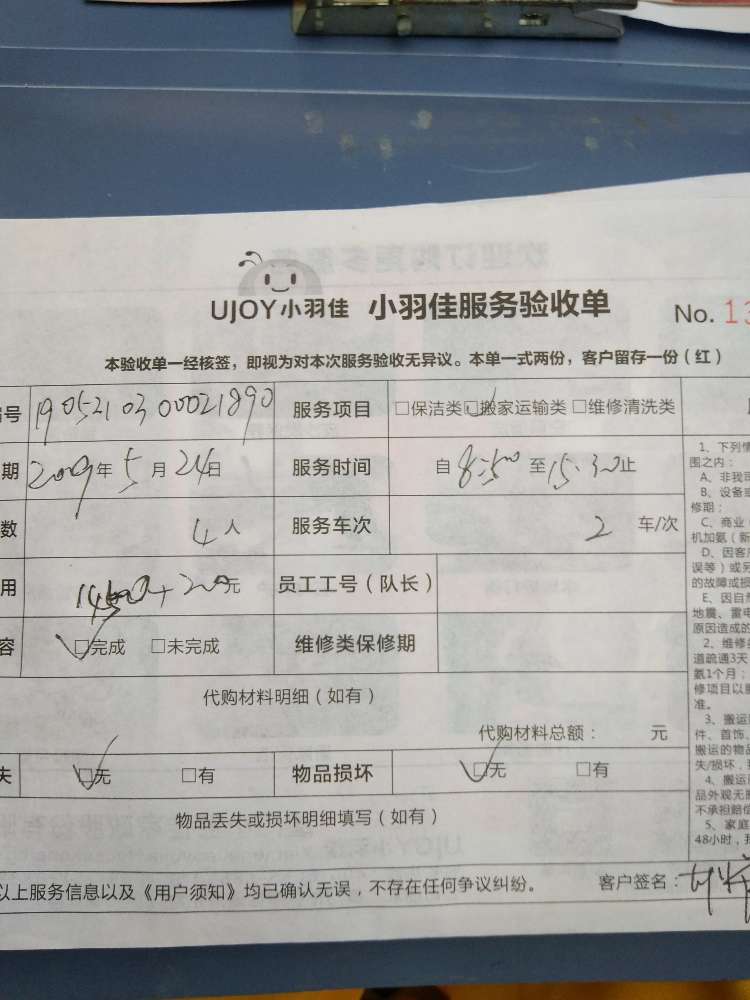 UJOY小羽佳 小羽佳服务验收单 No. 13
本验收单一经核签，即视为对本次服务验收无异议。本单一式两份，客户留存一份（红）
号 1905210300021890 服务项目 □保洁类 □搬家运输类 □维修清洗类
期 2009年5月24日 服务时间 自8:50至15:30止
数 4人 服务车次 2 车/次
用 +200元 员工工号（队长）
容 □完成 □未完成 维修类保修期
代购材料明细（如有）
代购材料总额： 元
失 □无 □有 物品损坏 □无 □有
物品丢失或损坏明细填写（如有）
以上服务信息以及《用户须知》均已确认无误，不存在任何争议纠纷。 客户签名：
1、下列情
围之内：
A、非我司
B、设备或
修期；
C、商业
机加氨（新
D、因客户
误等）或另
的故障或损
E、因自然
地震、雷电
原因造成的
2、维修类
道疏通3天
氨1个月；
修项目以服
准。
3、搬运
件、首饰、
搬运的物品
失/损坏，我
4、搬运
品外观无
不承担赔偿
5、家庭
48小时，我